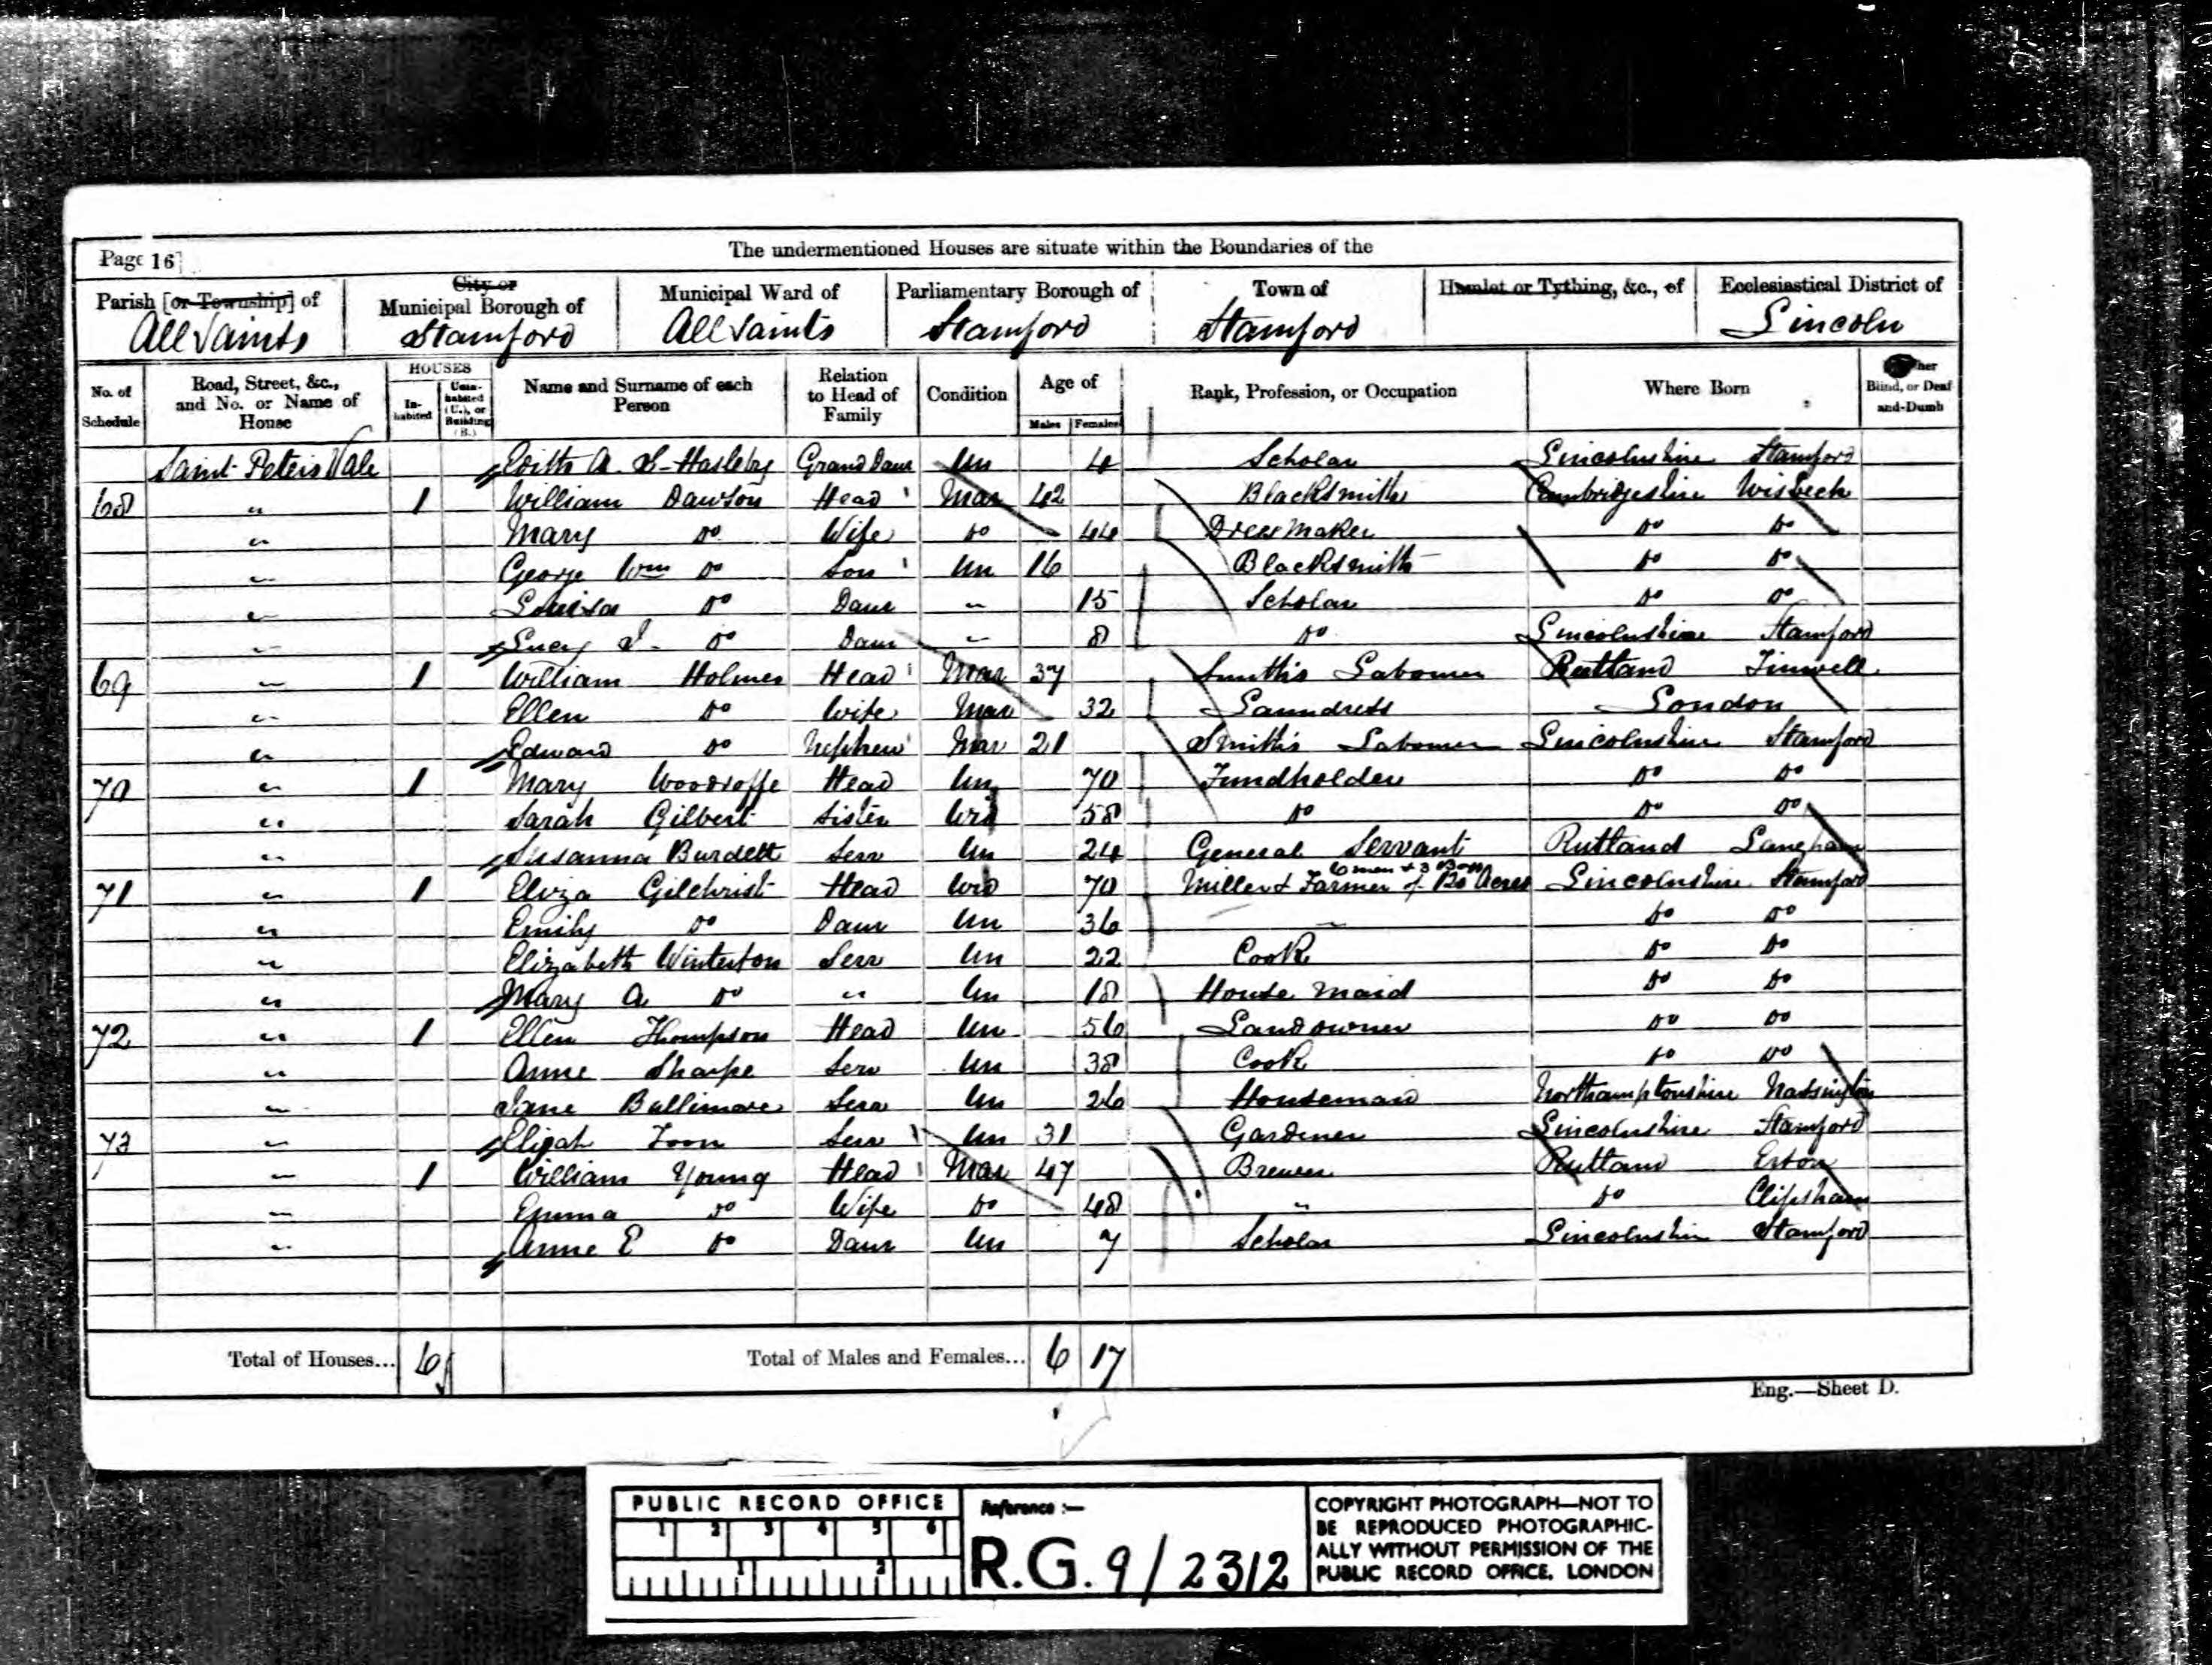 Page 16
The undermentioned Houses are situate within the Boundaries of the
Parish [or Township] of All Saints
City or Municipal Borough of Stamford
Municipal Ward of All Saints
Parliamentary Borough of Stamford
Town of Stamford
Hamlet or Tything, &c., of
Ecclesiastical District of Lincoln
No. of Schedule
Road, Street, &c., and No. or Name of House
HOUSES
In-habited
Unin-habited (U.), or Building (B.)
Name and Surname of each Person
Relation to Head of Family
Condition
Age of
Males Females
Rank, Profession, or Occupation
Where Born
Blind, or Deaf-and-Dumb
Saint Peters Vale Edith A. S. Grand Daur Un 4 Scholar Lincolnshire Stamford
68 " 1 William Dawson Head Mar 42 Blacksmith Cambridgeshire Wisbech
" Mary Do Wife Do 44 Dress Maker Do Do
" George Wm Do Son Un 16 Blacksmith Do Do
" Louisa Do Daur " 15 Scholar Do Do
" Lucy Do Daur " 8 Do Lincolnshire Stamford
69 " 1 William Holmes Head Mar 37 Smith's Labourer Rutland Tinwell
" Ellen Do Wife Mar 32 Laundress London
" Edward Do Nephew Mar 21 Smith's Labourer Lincolnshire Stamford
70 " 1 Mary Woodroffe Head Un 70 Fundholder Do Do
" Sarah Gilbert Sister Wid 58 Do Do Do
" Susanna Burdett Serv Un 24 General Servant Rutland Langham
71 " 1 Eliza Gilchrist Head Wid 70 Miller & Farmer of 120 Acres 6 men & 3 Boys Lincolnshire Stamford
" Emily Do Daur Un 36 — Do Do
" Elizabeth Winterton Serv Un 22 Cook Do Do
" Mary A Do " Un 18 House Maid Do Do
72 " 1 Ellen Thompson Head Un 56 Landowner Do Do
" Anne Sharpe Serv Un 38 Cook Do Do
" Jane Bullimore Serv Un 26 Housemaid Northamptonshire Nassington
73 " Elijah Toon Serv Un 31 Gardiner Lincolnshire Stamford
" 1 William Young Head Mar 47 Brewer Rutland
" Emma Do Wife Do 48 " Do Clipsham
" Anne E Do Daur Un 7 Scholar Lincolnshire Stamford
Total of Houses... 6
Total of Males and Females... 6 17
Eng.—Sheet D.
PUBLIC RECORD OFFICE
1 2 3 4 5 6
1 2
Reference :—
R.G. 9/2312
COPYRIGHT PHOTOGRAPH—NOT TO
BE REPRODUCED PHOTOGRAPHIC-
ALLY WITHOUT PERMISSION OF THE
PUBLIC RECORD OFFICE, LONDON